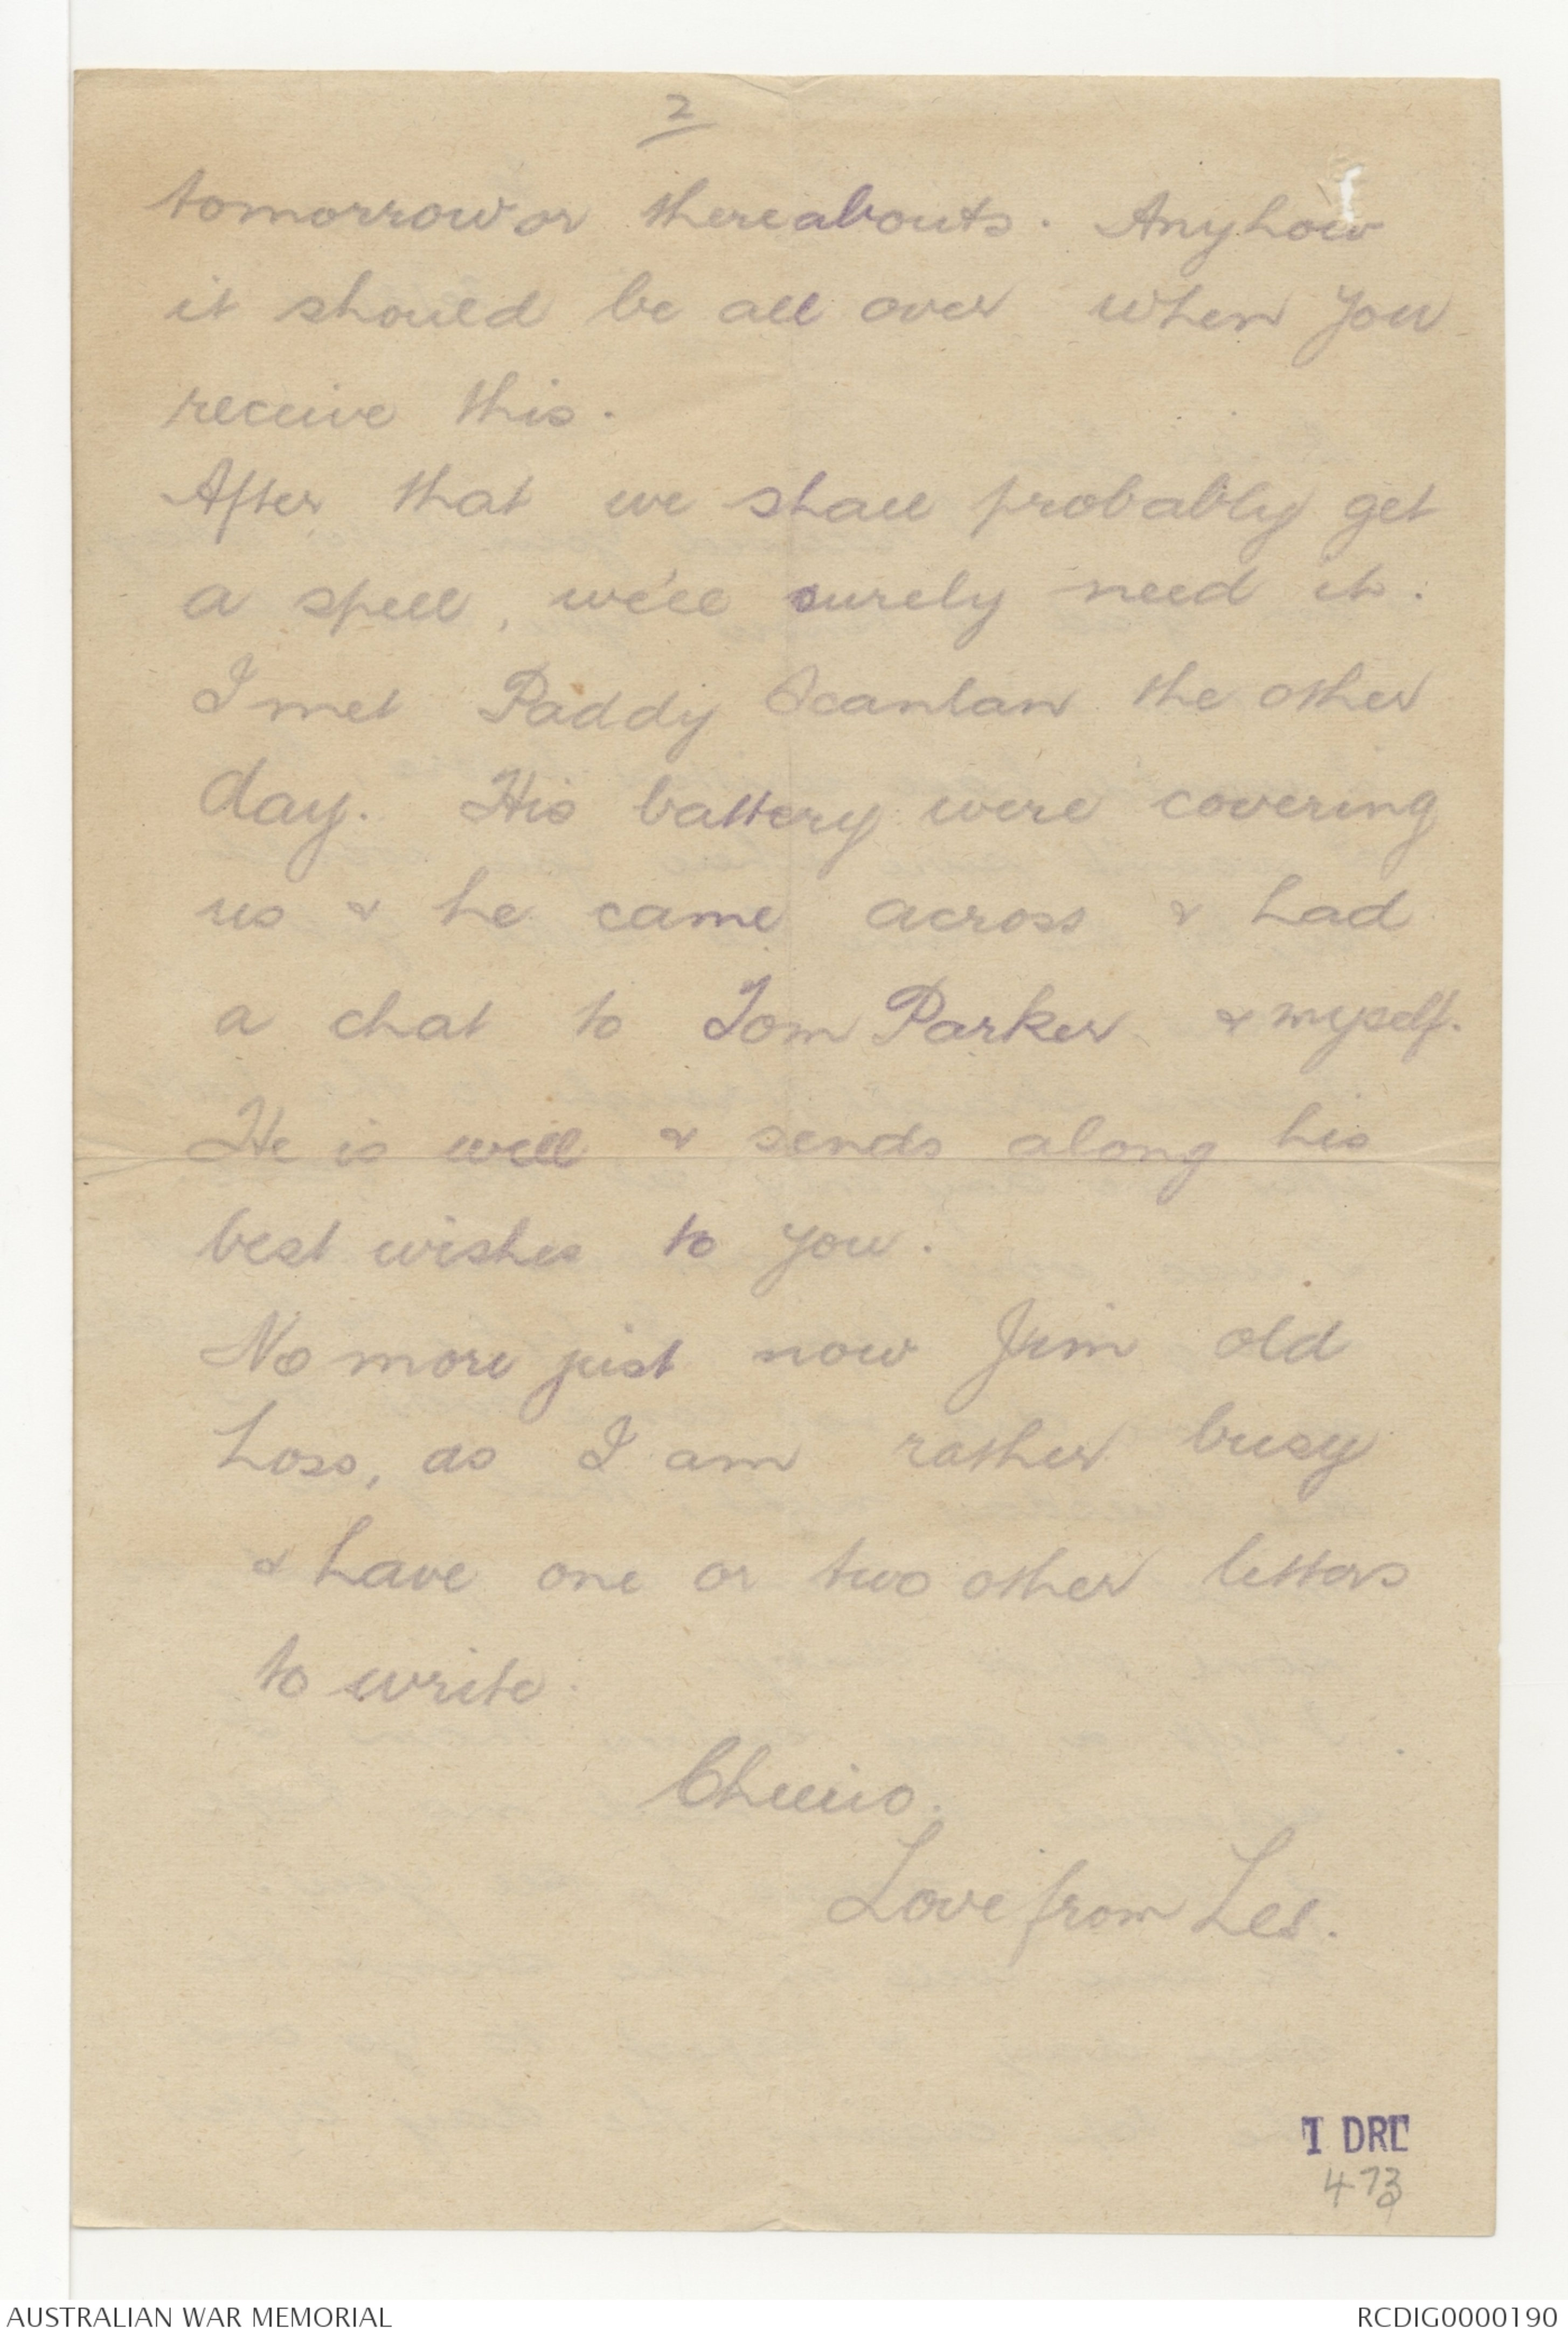 2
tomorrow or thereabouts. Anyhow
it should be all over when you
receive this.
After that we shall probably get
a spell, we'll surely need it.
I met Paddy Scanlan the other
day. His battery were covering
us & he came across & had
a chat to Tom Parker & myself.
He is well & sends along his
best wishes to you.
No more just now Jim old
hoss, as I am rather busy
& have one or two other letters
to write.
Cheerio.
Love from Les.
1 DRL
473
AUSTRALIAN WAR MEMORIAL
RCDIG0000190